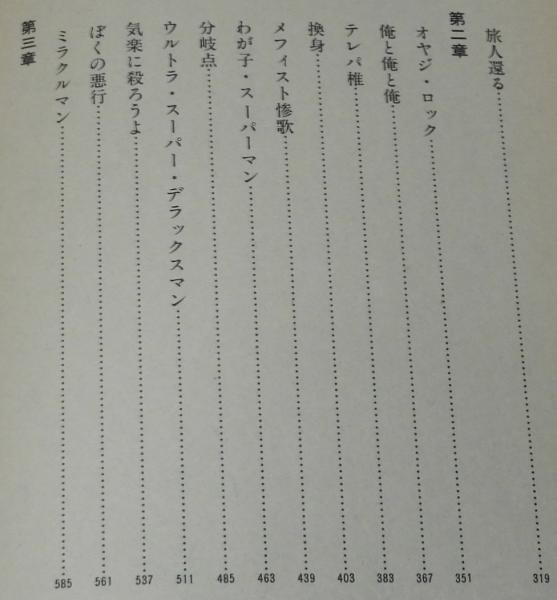 旅人還る……319
第二章
オヤジ・ロック……351
俺と俺と俺……367
テレパ椎……383
換身……403
メフィスト惨歌……439
わが子・スーパーマン……463
分岐点……485
ウルトラ・スーパー・デラックスマン……511
気楽に殺ろうよ……537
ぼくの悪行……561
ミラクルマン……585
第三章